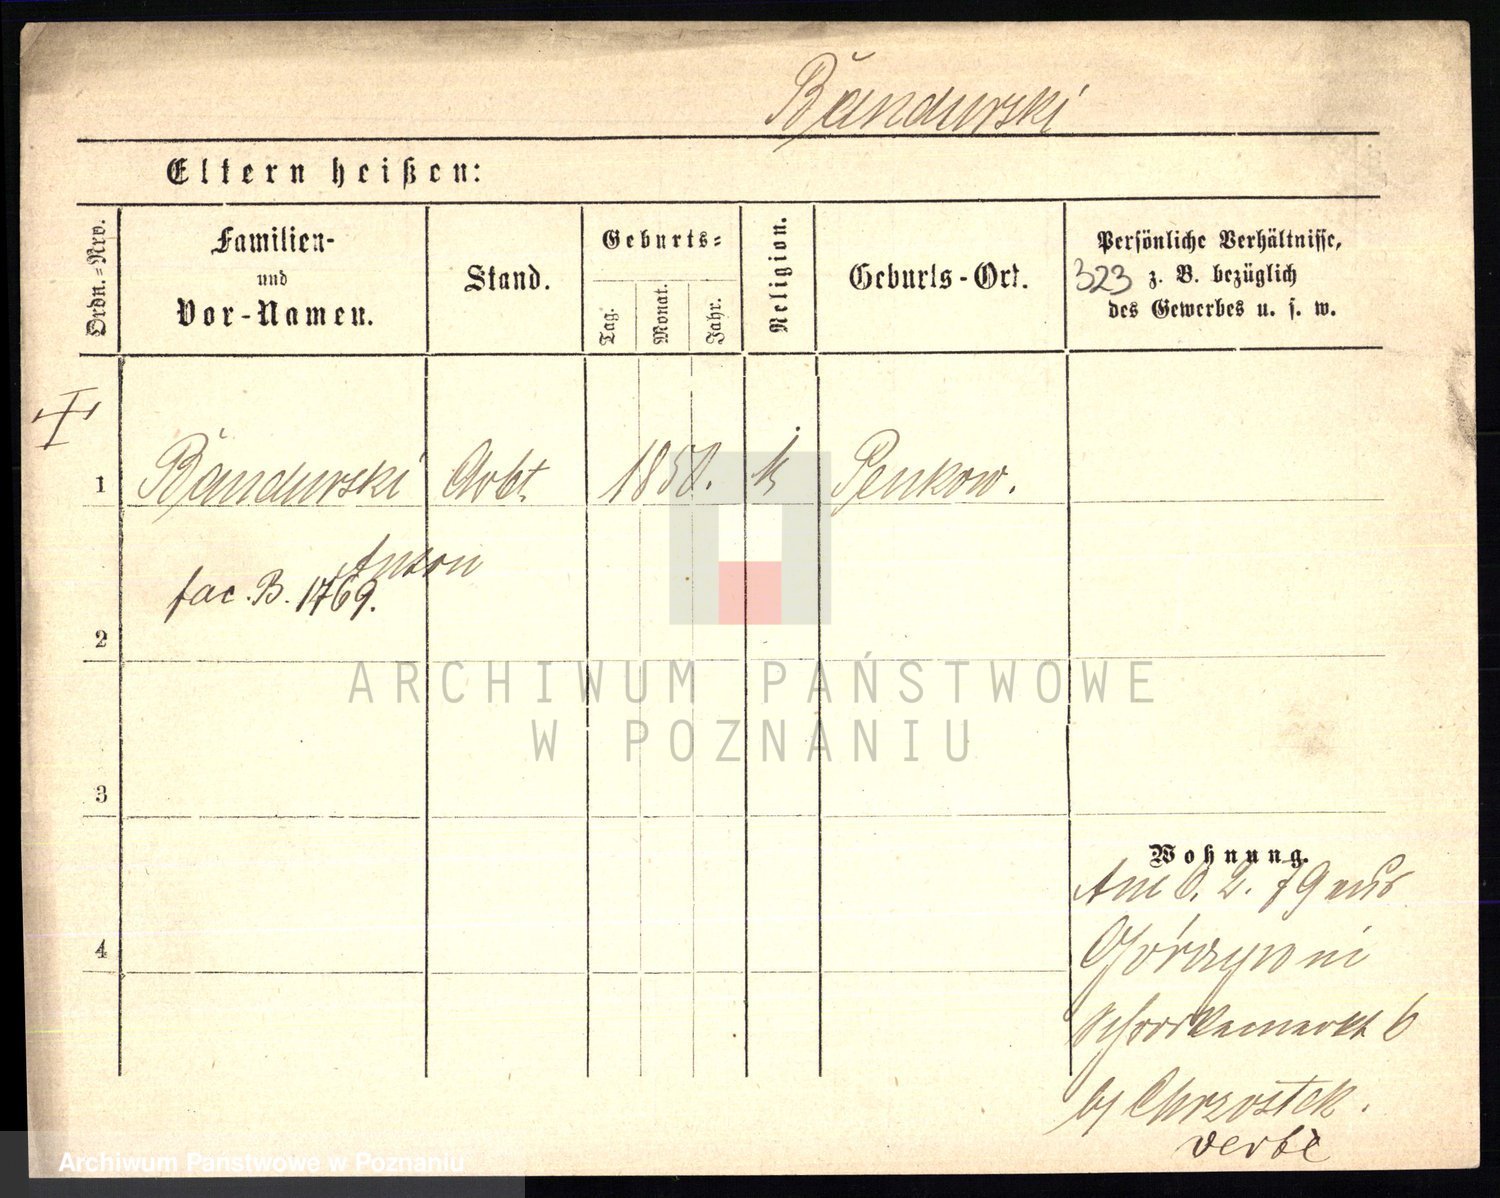 Bandurski
Eltern heißen:
Ordn.=Nro.
Familien-
und
Vor-Namen.
Stand.
Geburts-
Tag.
Monat.
Jahr.
Religion.
Geburts-Ort.
Persönliche Verhältnisse,
323 z. B. bezüglich
des Gewerbes u. s. w.
1 Bandurski Arbt 1850. k Penkow.
Anton
fac. B. 1769.
2
3
4
Wohnung.
Am 6. 2. 79 aus
6
bj Chrzostek.
ARCHIWUM PAŃSTWOWE
W POZNANIU
Archiwum Panstwowe w Poznaniu